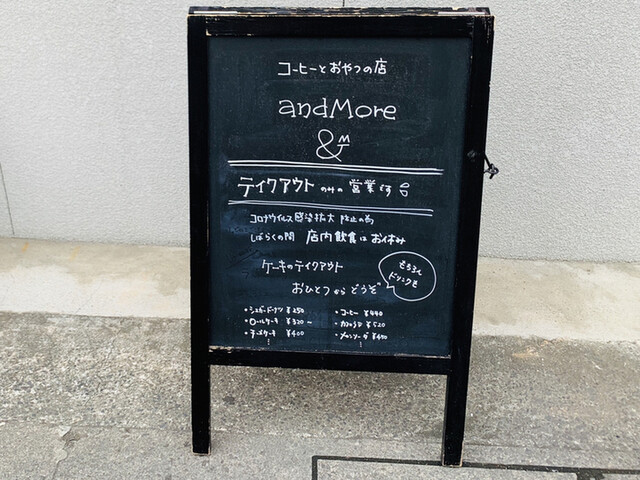 コーヒーとおやつの店
andMore
&M
テイクアウトのみの営業です
コロナウイルス感染拡大防止の為
しばらくの間 店内飲食はお休み
ケーキのテイクアウト
おひとつからどうぞ
もちろん
ドリンクも
・シュガードーナツ ¥250
・ロールケーキ ¥320〜
・チーズケーキ ¥400
⋮
・コーヒー ¥440
・カフェラテ ¥520
・メロンソーダ ¥450
⋮